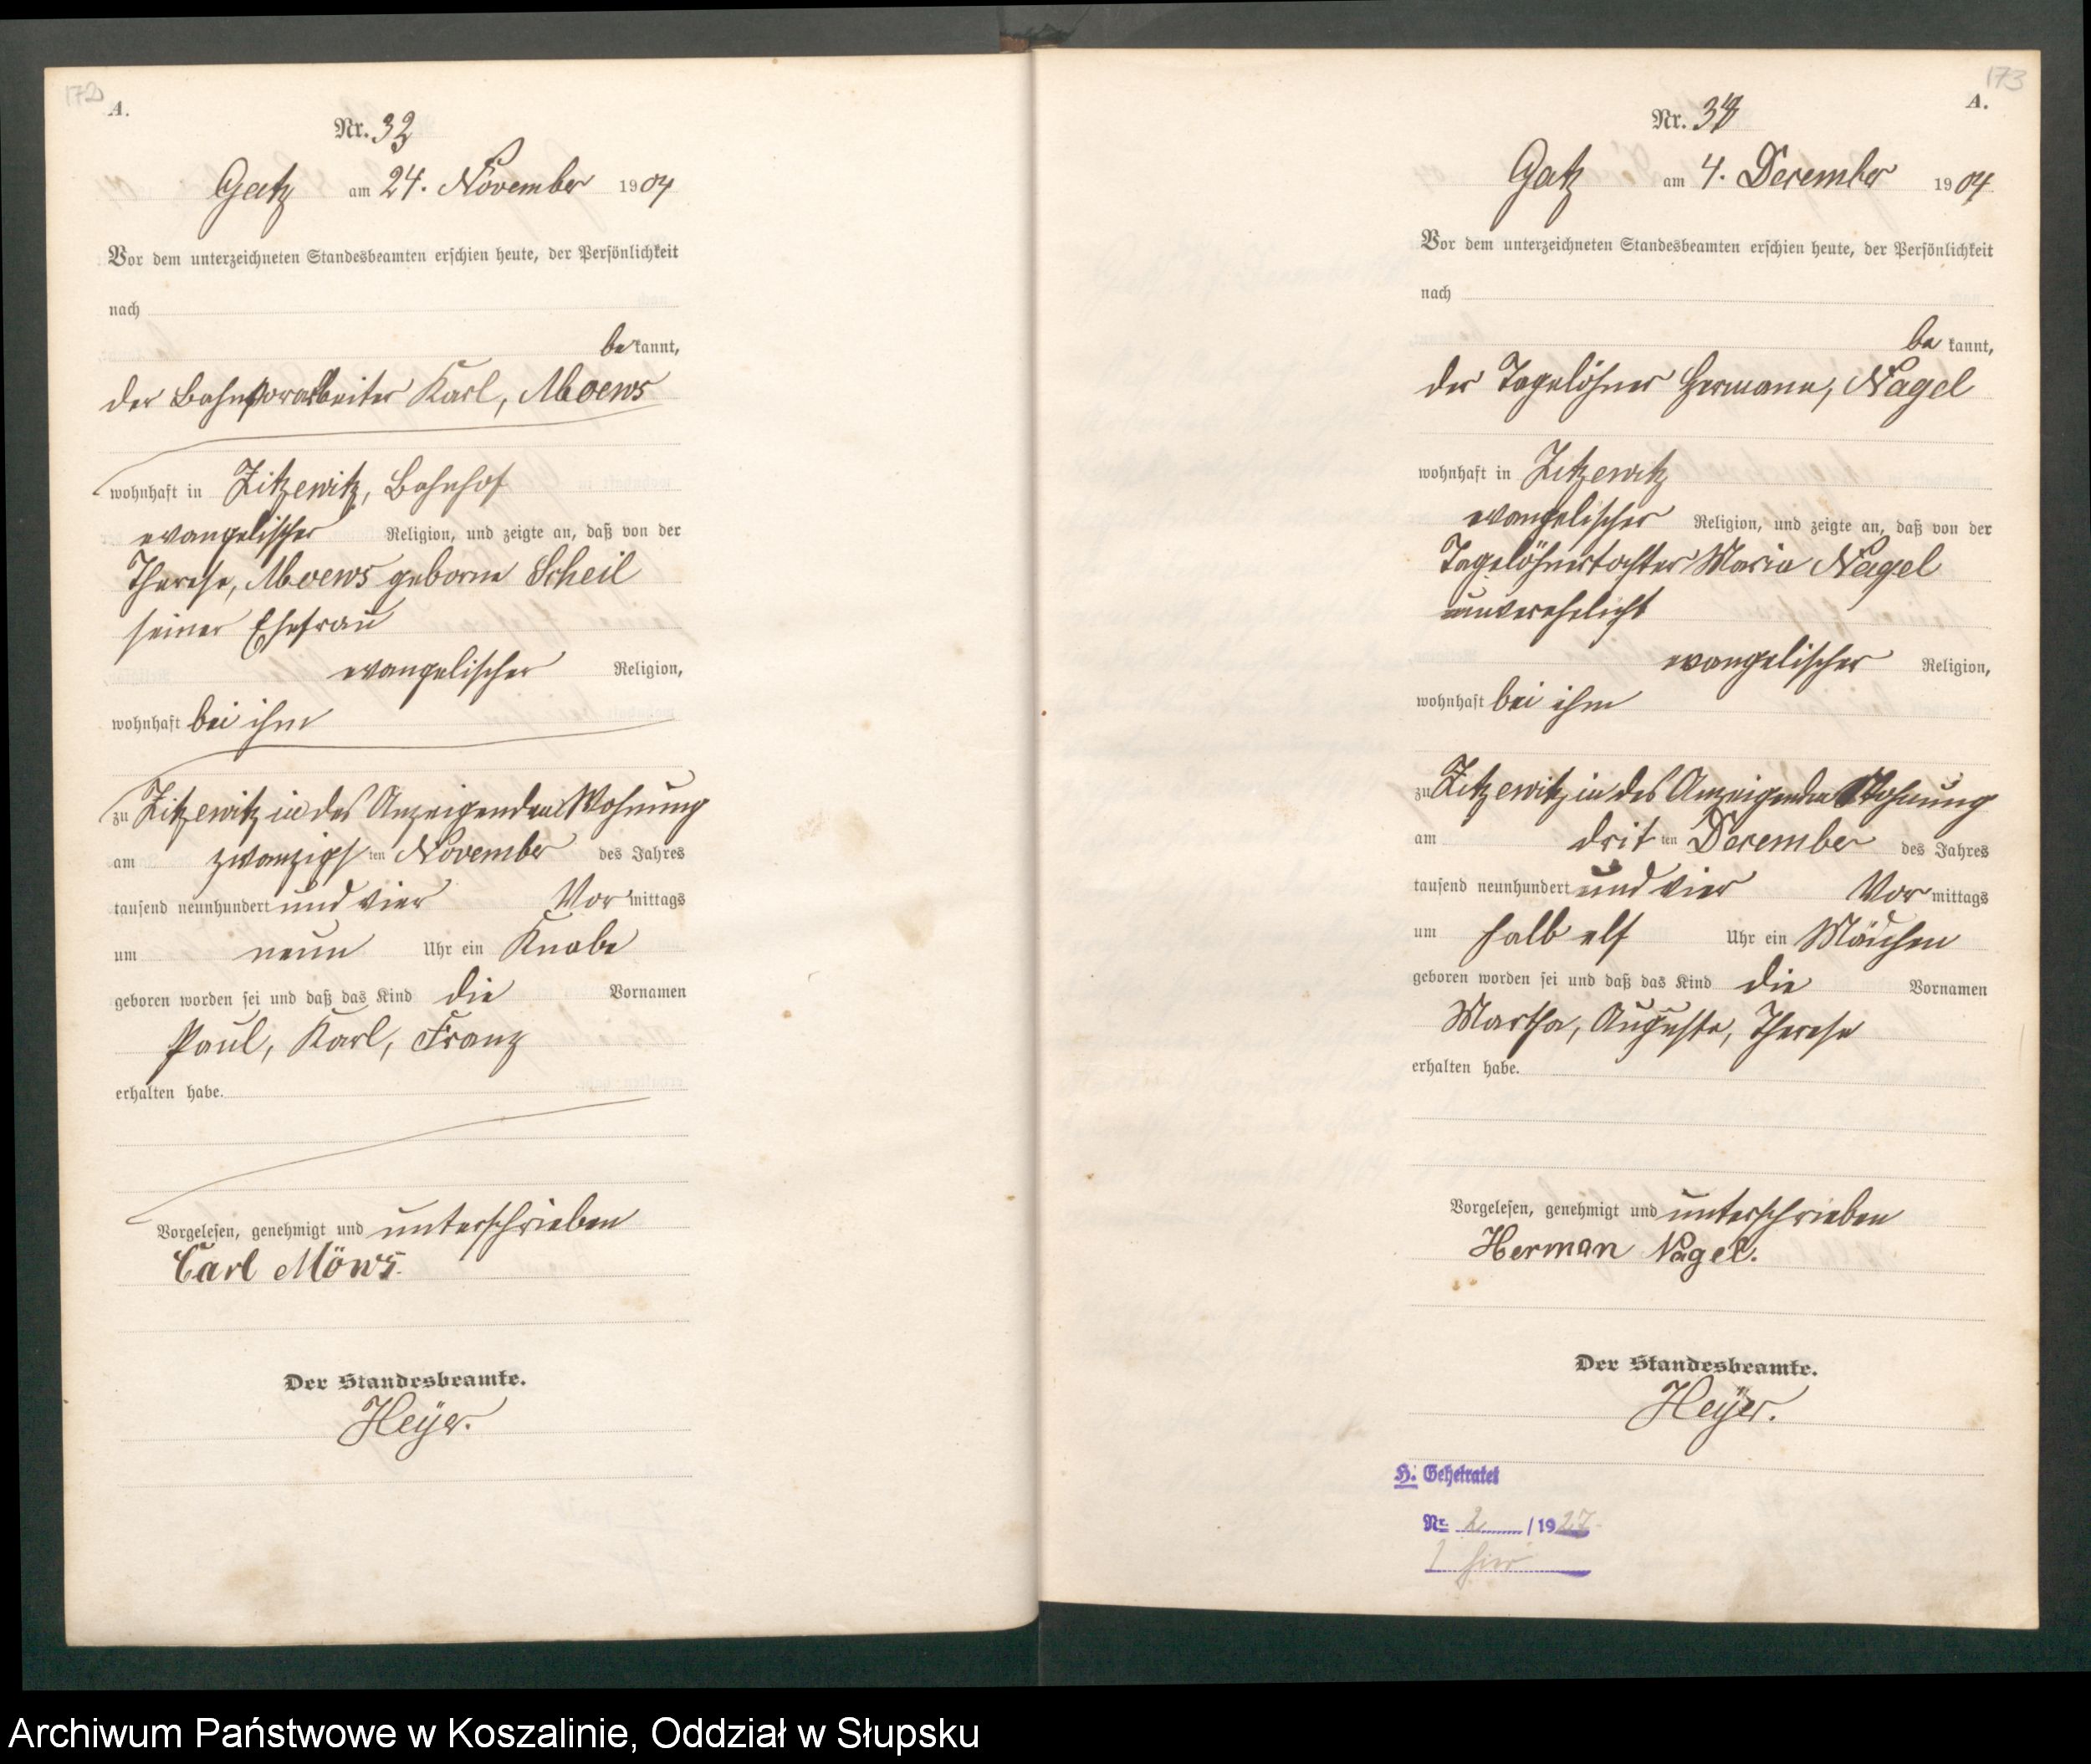 172
A.
Nr. 33
Gatz am 24. November 1904
Vor dem unterzeichneten Standesbeamten erschien heute, der Persönlichkeit
nach
be kannt,
der Bahnvorarbeiter Karl, Moews
wohnhaft in Zitzewitz, Bahnhof
evangelischer Religion, und zeigte an, daß von der
Therese, Moews geborne Scheil
seiner Ehefrau
evangelischer Religion,
wohnhaft bei ihm
zu Zitzewitz in des Anzeigenden Wohnung
am zwanzigsten November des Jahres
tausend neunhundert und vier Vormittags
um neun Uhr ein Knabe
geboren worden sei und daß das Kind die Vornamen
Paul, Karl, Franz
erhalten habe.
Vorgelesen, genehmigt und unterschrieben
Carl Möws.
Der Standesbeamte.
Heÿer.
173
A.
Nr. 34
Gatz am 4. December 1904
Vor dem unterzeichneten Standesbeamten erschien heute, der Persönlichkeit
nach
be kannt,
der Tagelöhner Hermann, Nagel
wohnhaft in Zitzewitz
evangelischer Religion, und zeigte an, daß von der
Tagelöhnertochter Maria Nagel
unverehelicht
evangelischer Religion,
wohnhaft bei ihm
zu Zitzewitz in des Anzeigenden Wohnung
am dritten December des Jahres
tausend neunhundert und vier Vormittags
um halb elf Uhr ein Mädchen
geboren worden sei und daß das Kind die Vornamen
Martha, Auguste, Therese
erhalten habe.
Vorgelesen, genehmigt und unterschrieben
Herman Nagel.
Der Standesbeamte.
Heÿer.
H. Geheiratet
Nr. 2 /1927
hier
Archiwum Państwowe w Koszalinie, Oddział w Słupsku